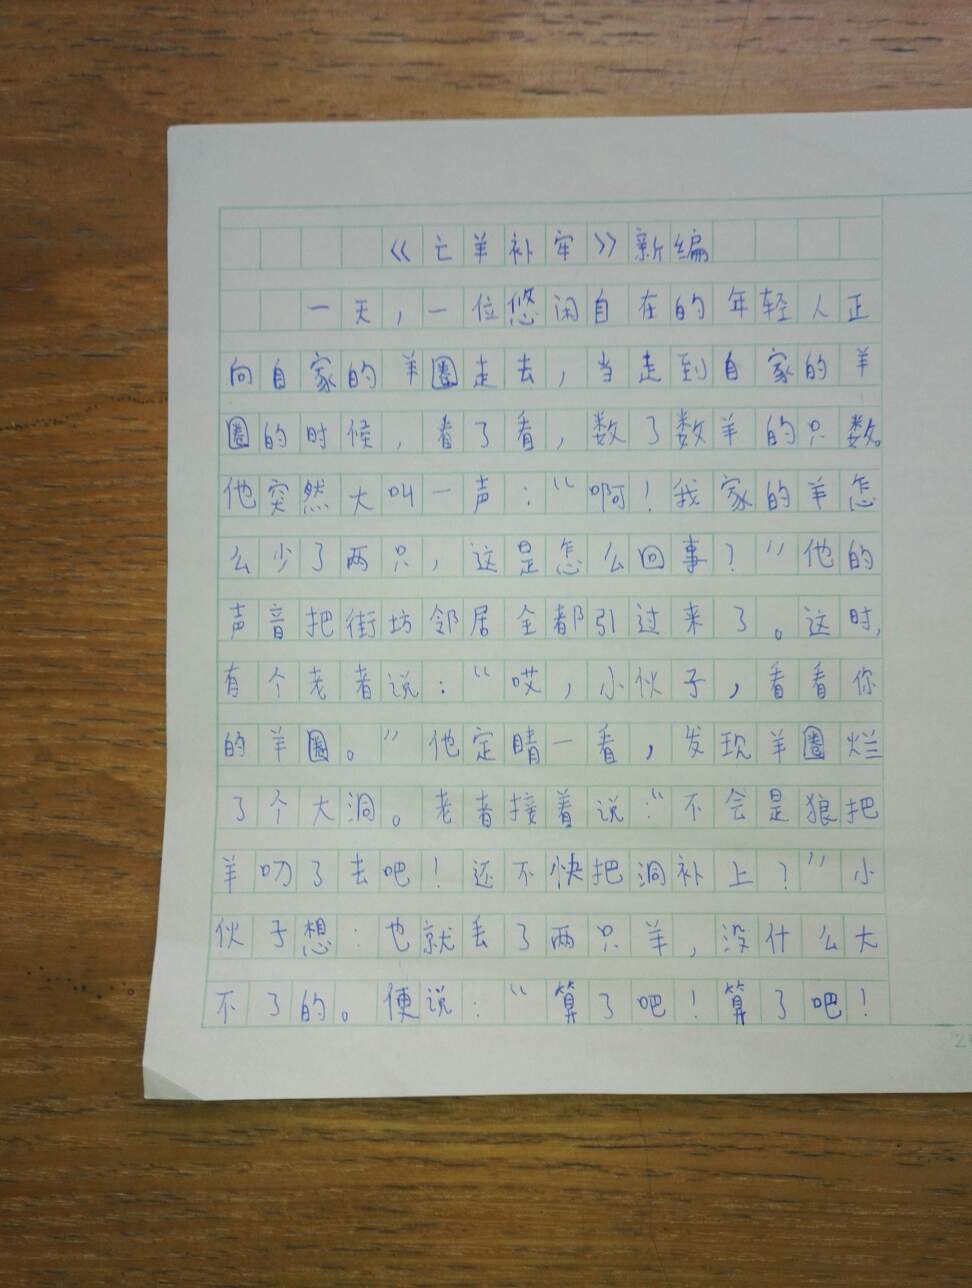 《亡羊补牢》新编
一天，一位悠闲自在的年轻人正
向自家的羊圈走去，当走到自家的羊
圈的时候，看了看，数了数羊的只数。
他突然大叫一声：“啊！我家的羊怎
么少了两只，这是怎么回事？”他的
声音把街坊邻居全都引过来了。这时，
有个老者说：“哎，小伙子，看看你
的羊圈。”他定睛一看，发现羊圈烂
了个大洞。老者接着说：“不会是狼把
羊叨了去吧！还不快把洞补上？”小
伙子想：也就丢了两只羊，没什么大
不了的。便说：“算了吧！算了吧！